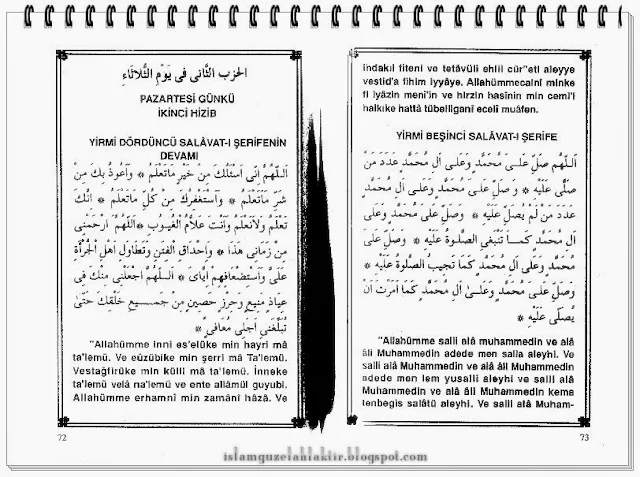 الحزب الثانى فى يَوْمِ الثُّلَاثَاءِ
PAZARTESİ GÜNKÜ
İKİNCİ HİZİB
YİRMİ DÖRDÜNCÜ SALÂVAT-I ŞERİFENİN
DEVAMI
اَللّٰهُمَّ اِنّى اَسْئَلُكَ مِنْ خَيْرِ مَاتَعْلَمُ * وَاَعُوذُ بِكَ مِنْ
شَرِّ مَاتَعْلَمُ * وَاَسْتَغْفِرُكَ مِنْ كُلِّ مَاتَعْلَمُ * اِنَّكَ
تَعْلَمُ وَلَانَعْلَمُ وَاَنْتَ عَلَّامُ الْغُيُوبِ * اَللّٰهُمَّ ارْحَمْنِى
مِنْ زَمَانِى هٰذَا * وَاِحْدَاقِ الْفِتَنِ وَتَطَاوُلِ اَهْلِ الْجُرْأَةِ
عَلَىَّ وَاسْتِضْعَافِهِمْ اِيَّاىَ * اَللّٰهُمَّ اجْعَلْنِى مِنْكَ فِى
عِيَاذٍ مَنِيعٍ وَحِرْزٍ حَصِينٍ مِنْ جَمِيعِ خَلْقِكَ حَتَّى
تُبَلِّغَنِى اَجَلِى مُعَافًى *
"Allahümme inni es'elüke min hayri mâ
ta'lemü. Ve eûzübike min şerri mâ Ta'lemü.
Vestağfirüke min külli mâ ta'lemü. İnneke
ta'lemü velâ na'lemü ve ente allâmül guyubi.
Allahümme erhamni min zamâni hâzâ. Ve
72
indakıl fiteni ve tetâvüli ehlil cür'eti aleyye
vestid'a fihim iyyâye. Allahümmecalni minke
fi iyâzin meni'in ve hirzin hasînin min cemi'i
halkıke hattâ tübelliganî eceli muâfen.
YİRMİ BEŞİNCİ SALÂVAT-I ŞERİFE
اَللّٰهُمَّ صَلِّ عَلٰى مُحَمَّدٍ وَعَلٰى اٰلِ مُحَمَّدٍ عَدَدَ مَنْ
صَلَّى عَلَيْهِ * وَصَلِّ عَلٰى مُحَمَّدٍ وَعَلٰى اٰلِ مُحَمَّدٍ
عَدَدَ مَنْ لَمْ يُصَلِّ عَلَيْهِ * وَصَلِّ عَلٰى مُحَمَّدٍ وَعَلٰى
اٰلِ مُحَمَّدٍ كَمَا تَنْبَغِى الصَّلٰوةُ عَلَيْهِ * وَصَلِّ عَلٰى
مُحَمَّدٍ وَعَلٰى اٰلِ مُحَمَّدٍ كَمَا تَجِبُ الصَّلٰوةُ عَلَيْهِ *
وَصَلِّ عَلٰى مُحَمَّدٍ وَعَلٰى اٰلِ مُحَمَّدٍ كَمَا اَمَرْتَ اَنْ
يُصَلَّى عَلَيْهِ *
"Allahümme salli alâ muhammedin ve alâ
âli Muhammedin adede men salla aleyhi. Ve
salli alâ Muhammedin ve alâ âli Muhammedin
adede men lem yusalli aleyhi ve salli alâ
Muhammedin ve alâ âli Muhammedin kema
tenbegis salâtü aleyhi. Ve salli alâ Muham-
73
islamguzelahlaktir.blogspot.com